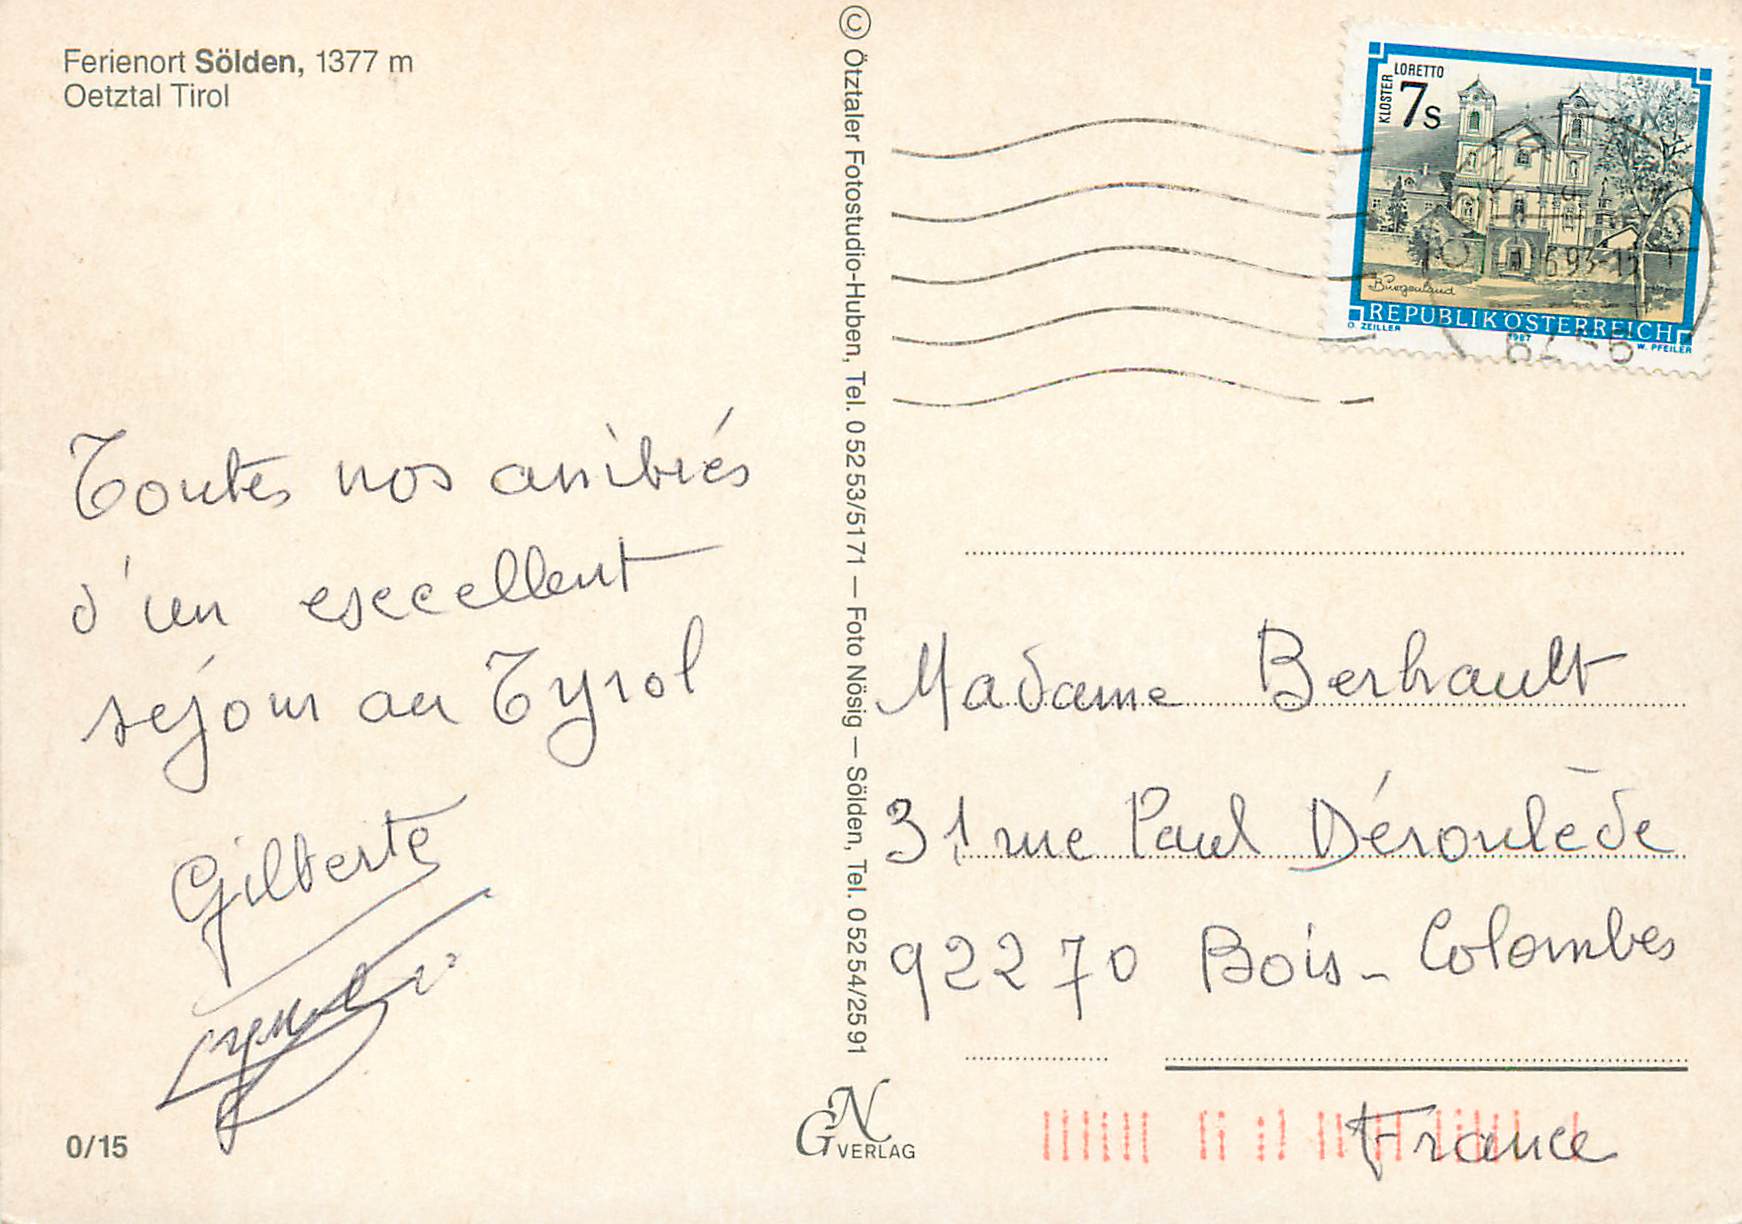 Ferienort Sölden, 1377 m
Oetztal Tirol
Toutes nos amitiés
d'un excellent
séjour au Tyrol
Gilberte
0/15
© Ötztaler Fotostudio-Huben, Tel. 05253/5171 — Foto Nösig — Sölden, Tel. 05254/2591
GN VERLAG
KLOSTER LORETTO
7s
Burgenland
REPUBLIK ÖSTERREICH
O. ZEILLER 1987 W. PFEILER
Madame Berhault
31 rue Paul Déroulède
92270 Bois-Colombes
France